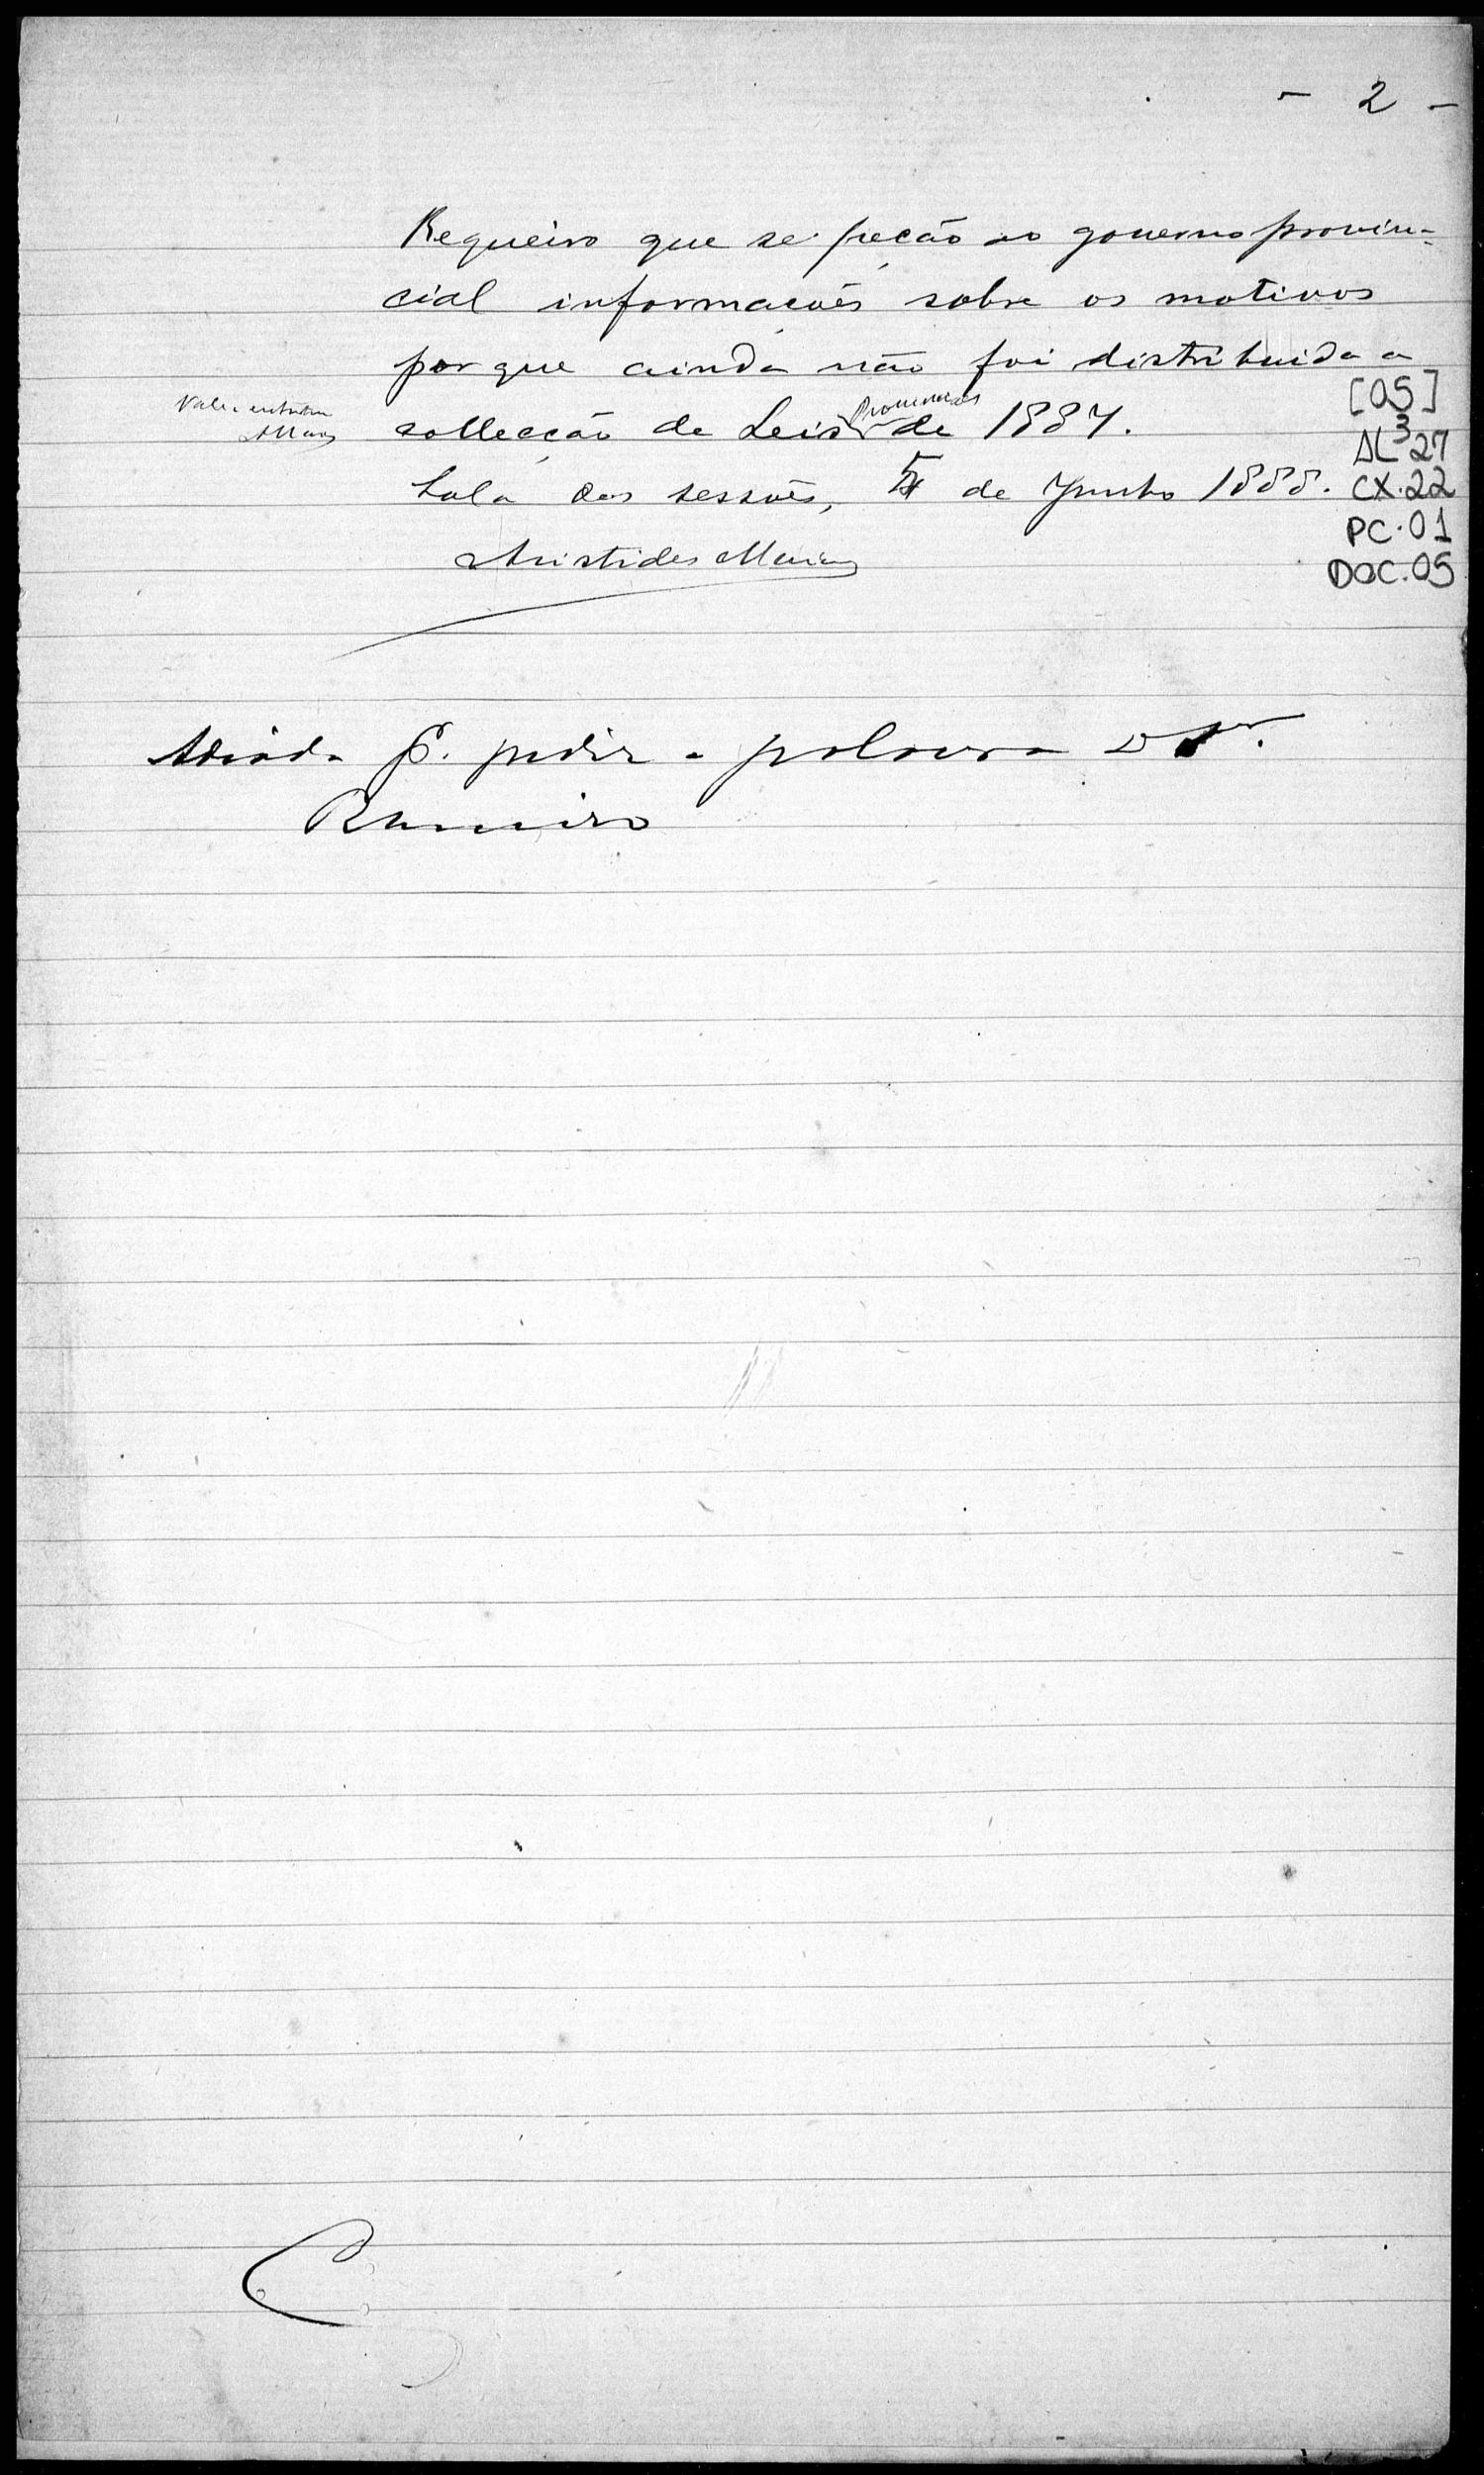 - 2 -
Requeiro que se peção ao governo provin-
cial informações sobre os motivos
porque ainda não foi distribuida a
Vale a entrelinha
AMaia
collecção de Leis Provinciaes de 1887.
Sala das sessões, 5 de Junho 1888.
Aristides Maia
[05]
AL³27
CX.22
PC.01
DOC.05
Adiada p. pedir a palavra o Sr.
Ramiro